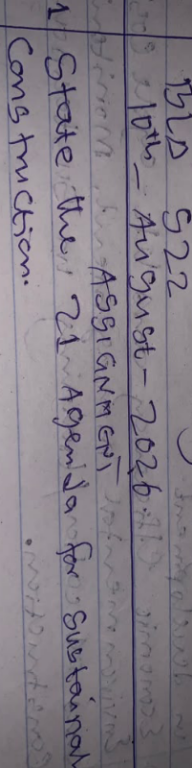 BLD 522
10th - August - 2026
ASSIGNMENT
1 State the 21 Agenda for Sustainab
Construction.